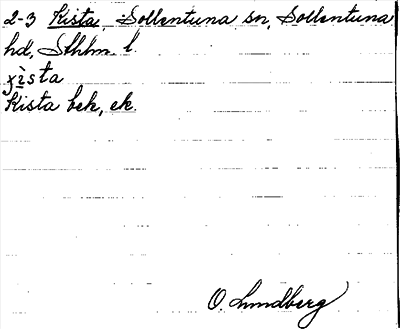 2-3 Kista, Sollentuna sn, Sollentuna
hd, Sthlm. l.
χìsta
Kista bek, ek.
O Lundberg